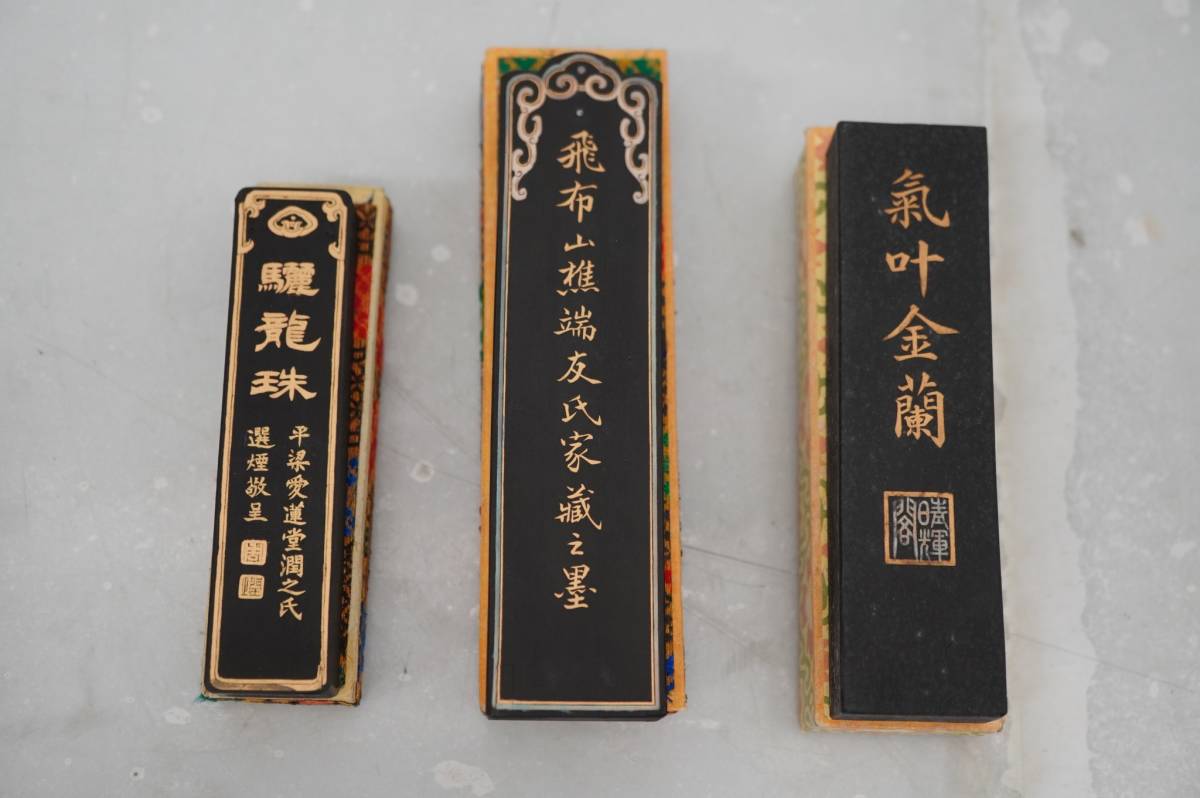 驪龍珠
平梁愛蓮堂潤之氏
選煙敬呈
飛布山樵端友氏家藏之墨
氣叶金蘭
晴輝閣